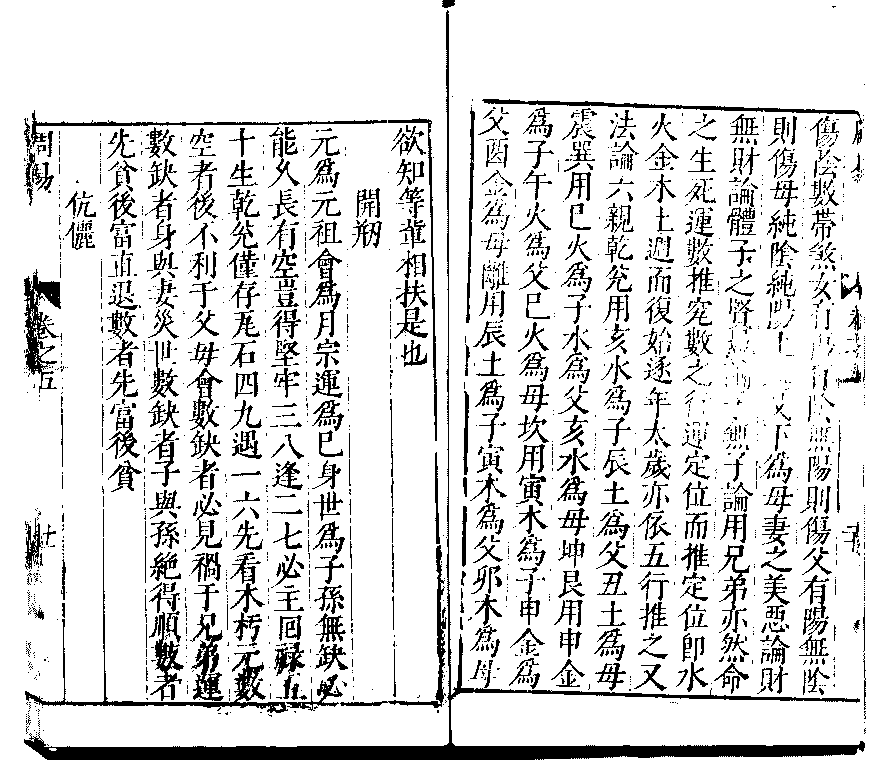 傷陰數帶煞女有無陽則傷父有陽無陰
則傷母純陰純陽上父下爲母妻之美惡論財
無財論體子之無子論用兄弟亦然命
之生死運數推究數之行運定位而推定位卽水
火金木土週而復始逐年太歲亦依五行推之又
法論六親乾兊用亥水爲子辰土爲父丑土爲母
震巽用巳火爲子水爲父亥水爲母坤艮用申金
爲子午火爲父巳火爲母坎用寅木爲子申金爲
父酉金爲母離用辰土爲子寅木爲父卯木爲母
欲知等輩相扶是也
開剏
元爲元祖會爲月宗運爲已身世爲子孫無缺必
能久長有空豈得堅牢三八逢二七必主回祿五
十生乾兊僅存瓦石四九遇一六先看木朽元數
空者後不利于父母會數缺者必見禍于兄弟運
數缺者身與妻災世數缺者子與孫絶得順數者
先貧後富直退數者先富後貧
伉儷
周易
卷之五
十一